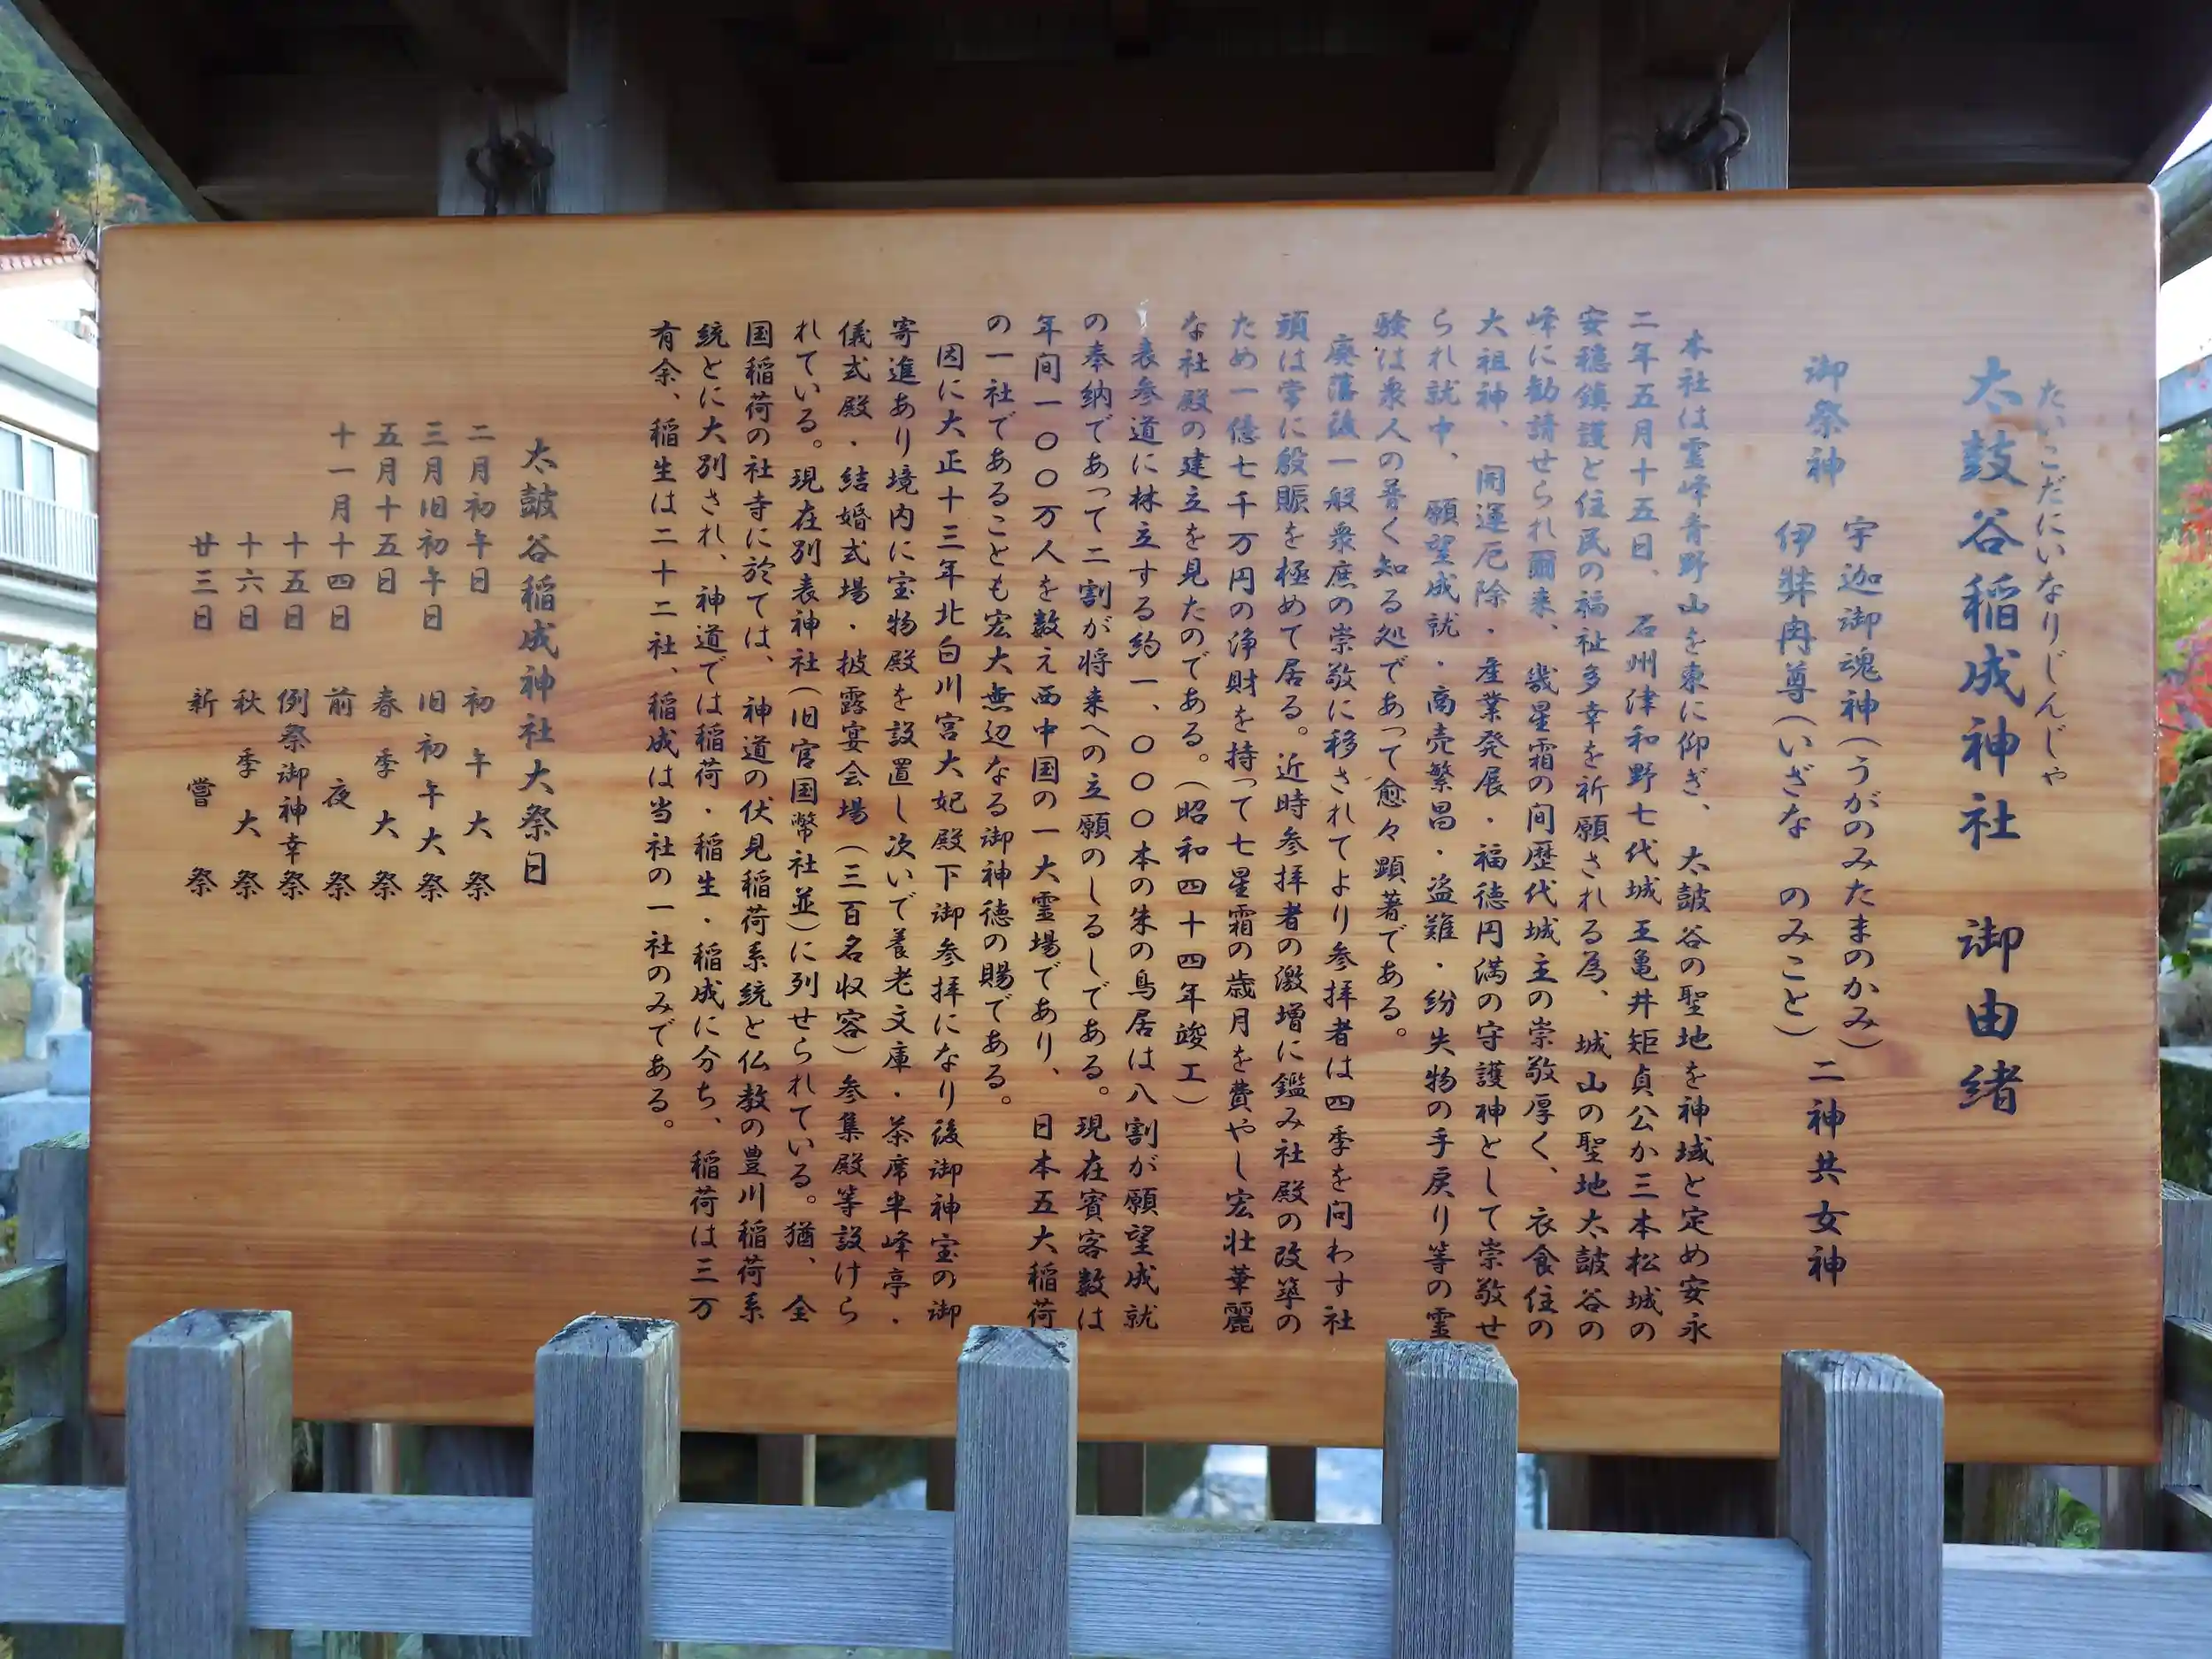 たいこだにいなりじんじゃ
太皷谷稲成神社 御由緒
御祭神
宇迦御魂神(うがのみたまのかみ)
伊弉冉尊(いざな のみこと)
二神共女神
本社は霊峰青野山を東に仰ぎ、太皷谷の聖地を神域と定め安永
二年五月十五日、石州津和野七代城主亀井矩貞公か三本松城の
安穏鎮護と住民の福祉多幸を祈願される為、城山の聖地太皷谷の
峰に勧請せられ爾来、幾星霜の間歴代城主の崇敬厚く、衣食住の
大祖神、開運厄除・産業発展・福徳円満の守護神として崇敬せ
られ就中、願望成就・商売繁昌・盗難・紛失物の手戻り等の霊
験は衆人の普く知る処であって愈々顕著である。
廃藩後一般衆庶の崇敬に移されてより参拝者は四季を問わす社
頭は常に殷賑を極めて居る。近時参拝者の激増に鑑み社殿の改築の
ため一億七千万円の浄財を持って七星霜の歳月を費やし宏壮華麗
な社殿の建立を見たのである。(昭和四十四年竣工)
表参道に林立する約一、〇〇〇本の朱の鳥居は八割が願望成就
の奉納であって二割が将来への立願のしるしである。現在賓客数は
年間一〇〇万人を数え西中国の一大霊場であり、日本五大稲荷
の一社であることも宏大無辺なる御神徳の賜である。
因に大正十三年北白川宮大妃殿下御参拝になり後御神宝の御
寄進あり境内に宝物殿を設置し次いで養老文庫・茶席半峰亭・
儀式殿・結婚式場・披露宴会場(三百名収容)参集殿等設けら
れている。現在別表神社(旧官国幣社並)に列せられている。猶、全
国稲荷の社寺に於ては、神道の伏見稲荷系統と仏教の豊川稲荷系
統とに大別され、神道では稲荷・稲生・稲成に分ち、稲荷は三万
有余、稲生は二十二社、稲成は当社の一社のみである。
太皷谷稲成神社大祭日
二月初午日 初午大祭
三月旧初午日 旧初午大祭
五月十五日 春季大祭
十一月十四日 前夜祭
十五日 例祭御神幸祭
十六日 秋季大祭
廿三日 新嘗祭